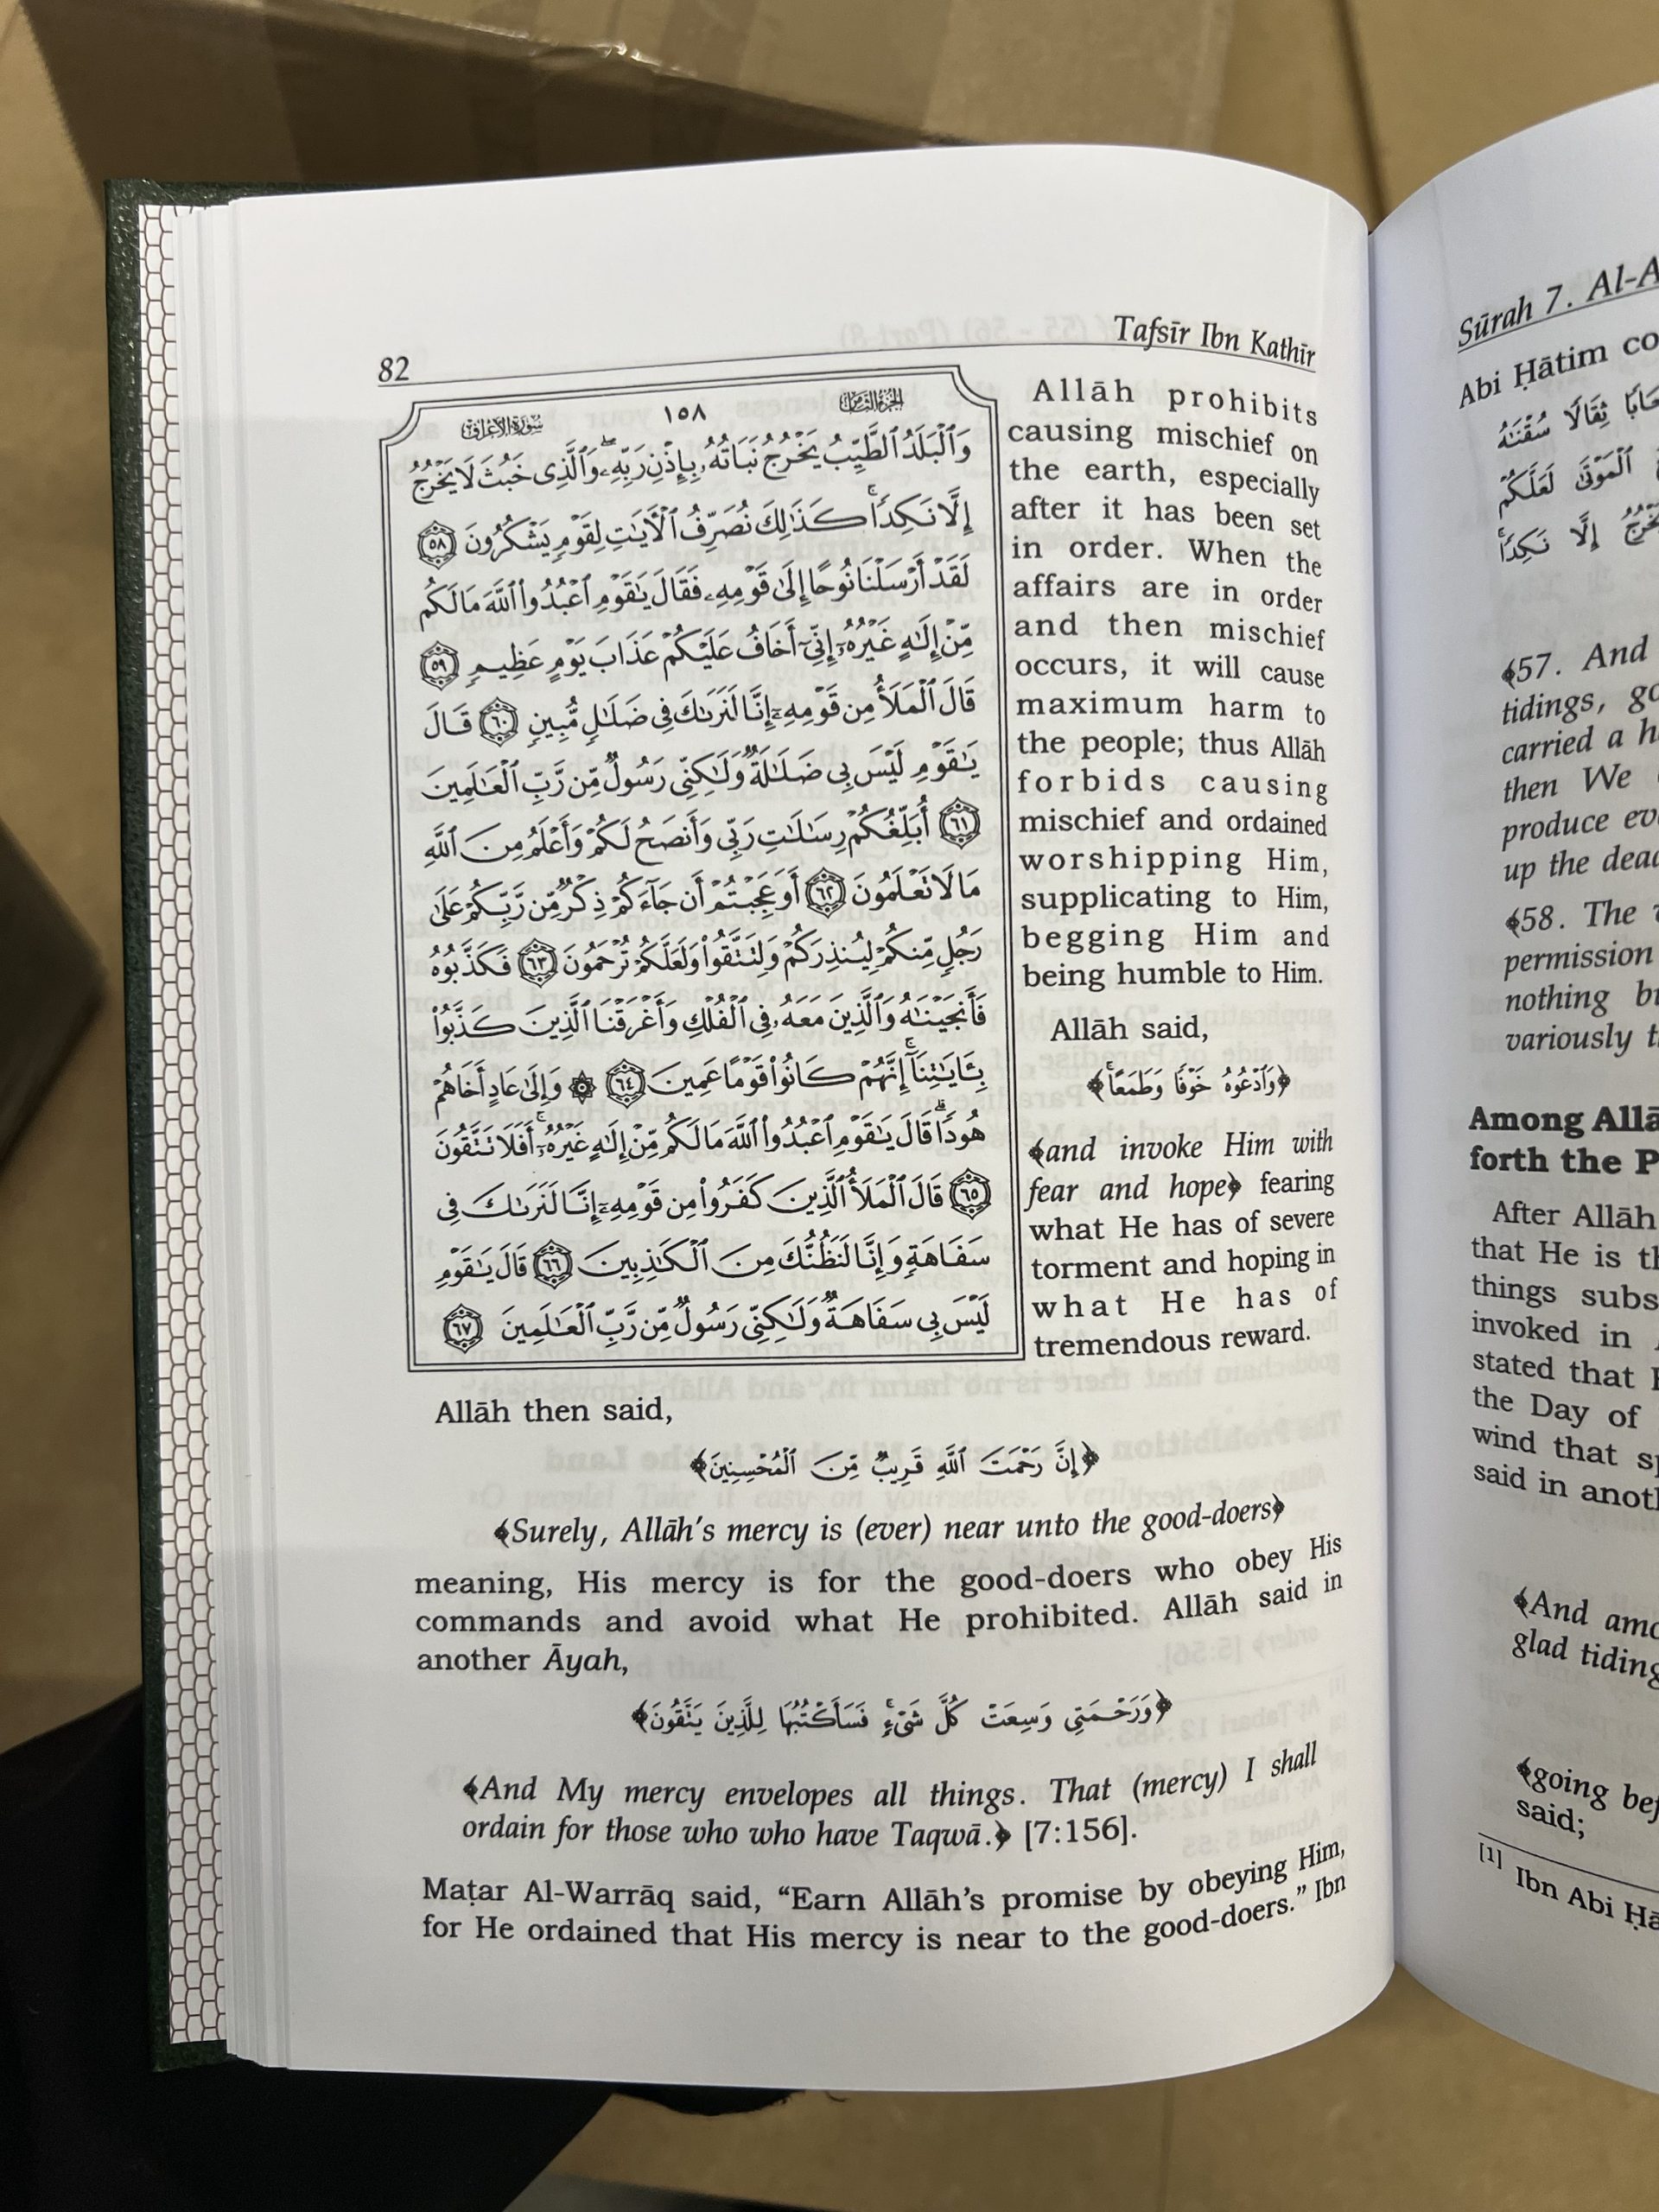 82
Tafsīr Ibn Kathīr
سورة الأعراف
١٥٨
الجزء الثامن
وَٱلْبَلَدُ ٱلطَّيِّبُ يَخْرُجُ نَبَاتُهُۥ بِإِذْنِ رَبِّهِۦ ۖ وَٱلَّذِى خَبُثَ لَا يَخْرُجُ
إِلَّا نَكِدًا ۚ كَذَٰلِكَ نُصَرِّفُ ٱلْـَٔايَٰتِ لِقَوْمٍ يَشْكُرُونَ ٥٨
لَقَدْ أَرْسَلْنَا نُوحًا إِلَىٰ قَوْمِهِۦ فَقَالَ يَٰقَوْمِ ٱعْبُدُوا۟ ٱللَّهَ مَا لَكُم
مِّنْ إِلَٰهٍ غَيْرُهُۥٓ إِنِّىٓ أَخَافُ عَلَيْكُمْ عَذَابَ يَوْمٍ عَظِيمٍ ٥٩
قَالَ ٱلْمَلَأُ مِن قَوْمِهِۦٓ إِنَّا لَنَرَىٰكَ فِى ضَلَٰلٍ مُّبِينٍ ٦٠ قَالَ
يَٰقَوْمِ لَيْسَ بِى ضَلَٰلَةٌ وَلَٰكِنِّى رَسُولٌ مِّن رَّبِّ ٱلْعَٰلَمِينَ
٦١ أُبَلِّغُكُمْ رِسَٰلَٰتِ رَبِّى وَأَنصَحُ لَكُمْ وَأَعْلَمُ مِنَ ٱللَّهِ
مَا لَا تَعْلَمُونَ ٦٢ أَوَعَجِبْتُمْ أَن جَآءَكُمْ ذِكْرٌ مِّن رَّبِّكُمْ عَلَىٰ
رَجُلٍ مِّنكُمْ لِيُنذِرَكُمْ وَلِتَتَّقُوا۟ وَلَعَلَّكُمْ تُرْحَمُونَ ٦٣ فَكَذَّبُوهُ
فَأَنجَيْنَٰهُ وَٱلَّذِينَ مَعَهُۥ فِى ٱلْفُلْكِ وَأَغْرَقْنَا ٱلَّذِينَ كَذَّبُوا۟
بِـَٔايَٰتِنَآ ۚ إِنَّهُمْ كَانُوا۟ قَوْمًا عَمِينَ ٦٤ ۞ وَإِلَىٰ عَادٍ أَخَاهُمْ
هُودًا ۗ قَالَ يَٰقَوْمِ ٱعْبُدُوا۟ ٱللَّهَ مَا لَكُم مِّنْ إِلَٰهٍ غَيْرُهُۥٓ ۚ أَفَلَا تَتَّقُونَ
٦٥ قَالَ ٱلْمَلَأُ ٱلَّذِينَ كَفَرُوا۟ مِن قَوْمِهِۦٓ إِنَّا لَنَرَىٰكَ فِى
سَفَاهَةٍ وَإِنَّا لَنَظُنُّكَ مِنَ ٱلْكَٰذِبِينَ ٦٦ قَالَ يَٰقَوْمِ
لَيْسَ بِى سَفَاهَةٌ وَلَٰكِنِّى رَسُولٌ مِّن رَّبِّ ٱلْعَٰلَمِينَ ٦٧
Allāh prohibits
causing mischief on
the earth, especially
after it has been set
in order. When the
affairs are in order
and then mischief
occurs, it will cause
maximum harm to
the people; thus Allāh
forbids causing
mischief and ordained
worshipping Him,
supplicating to Him,
begging Him and
being humble to Him.
Allāh said,
﴿وَٱدْعُوهُ خَوْفًا وَطَمَعًا ۚ﴾
﴾and invoke Him with
fear and hope﴿ fearing
what He has of severe
torment and hoping in
what He has of
tremendous reward.
Allāh then said,
﴿إِنَّ رَحْمَتَ ٱللَّهِ قَرِيبٌ مِّنَ ٱلْمُحْسِنِينَ﴾
﴾Surely, Allāh's mercy is (ever) near unto the good-doers﴿
meaning, His mercy is for the good-doers who obey His
commands and avoid what He prohibited. Allāh said in
another Āyah,
﴿وَرَحْمَتِى وَسِعَتْ كُلَّ شَىْءٍ ۚ فَسَأَكْتُبُهَا لِلَّذِينَ يَتَّقُونَ﴾
﴾And My mercy envelopes all things. That (mercy) I shall
ordain for those who who have Taqwā.﴿ [7:156].
Maṭar Al-Warrāq said, “Earn Allāh's promise by obeying Him,
for He ordained that His mercy is near to the good-doers.” Ibn
Sūrah 7. Al-A
Abi Ḥātim co
ثِقَالًا سُقْنَٰهُ
ٱلْمَوْتَىٰ لَعَلَّكُمْ
إِلَّا نَكِدًا ۚ
﴾57. And
tidings, go
carried a h
then We
produce ev
up the dead
﴾58. The
permission
nothing bu
variously t
Among Allā
forth the P
After Allāh
that He is th
things subs
invoked in
stated that
the Day of
wind that sp
said in anot
﴾And amo
glad tiding
﴾going bef
said;
[1] Ibn Abi Ḥā